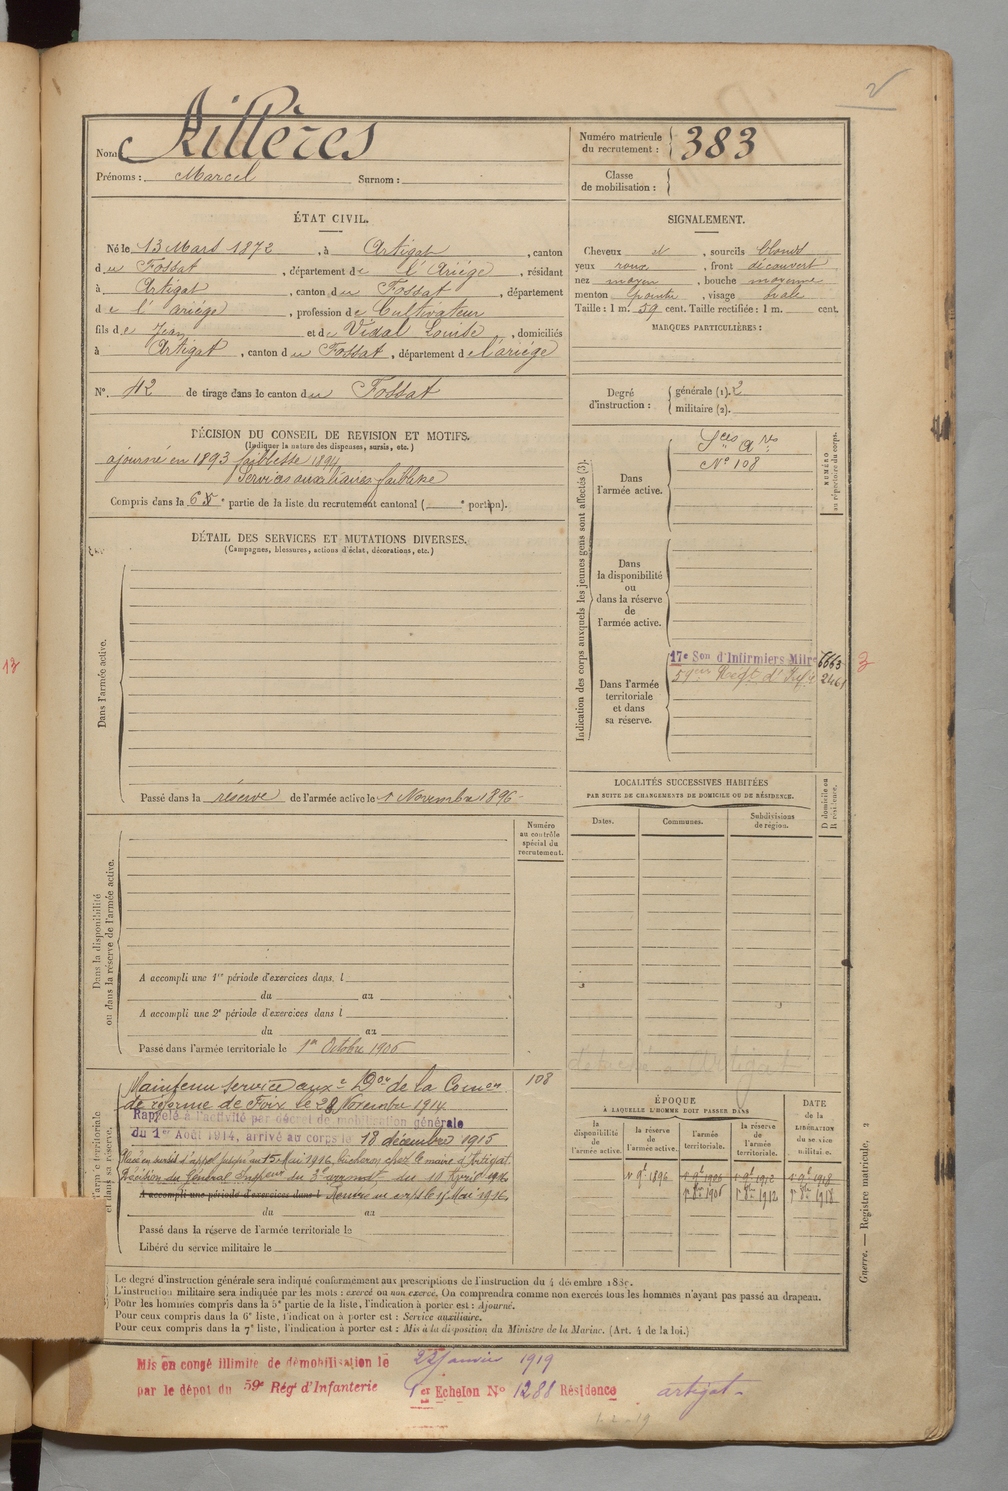 Nom Rillères
Prénoms : Marcel Surnom :
Numéro matricule du recrutement : 383
Classe de mobilisation :
ÉTAT CIVIL.
Né le 13 Mars 1872, à Artigat, canton
du Fossat, département de l'Ariége, résidant
à Artigat, canton du Fossat, département
de l'ariége, profession de Cultivateur
fils de Jean et de Vidal Louise, domiciliés
à Artigat, canton du Fossat, département de l'ariége
SIGNALEMENT.
Cheveux et, sourcils blonds
yeux roux, front découvert
nez moyen, bouche moyenne
menton pointu, visage ovale
Taille : 1 m. 59 cent. Taille rectifiée : 1 m. cent.
MARQUES PARTICULIÈRES :
N°. 42 de tirage dans le canton du Fossat
Degré d'instruction : générale (1). 2
militaire (2).
DÉCISION DU CONSEIL DE REVISION ET MOTIFS.
(Indiquer la nature des dispenses, sursis, etc.)
ajourné en 1893 faiblesse 1894
Services auxiliaires faiblesse
Compris dans la 6e partie de la liste du recrutement cantonal ( e portion).
DÉTAIL DES SERVICES ET MUTATIONS DIVERSES.
(Campagnes, blessures, actions d'éclat, décorations, etc.)
Dans l'armée active.
Passé dans la réserve de l'armée active le 1 Novembre 1896
Indication des corps auxquels les jeunes gens sont affectés (3).
NUMÉRO au répertoire du corps.
Dans l'armée active.
Sces Ares
N° 108
Dans la disponibilité ou dans la réserve de l'armée active.
Dans l'armée territoriale et dans sa réserve.
17e Son d'Infirmiers Milres 6663
59me Regt d'Infie 2461
3
13
LOCALITÉS SUCCESSIVES HABITÉES
PAR SUITE DE CHANGEMENTS DE DOMICILE OU DE RÉSIDENCE.
Dates. Communes. Subdivisions de région.
D domicile ou R résidence.
Dans la disponibilité ou dans la réserve de l'armée active.
Numéro au contrôle spécial du recrutement.
A accompli une 1re période d'exercices dans l
du au
A accompli une 2e période d'exercices dans l
du au
Passé dans l'armée territoriale le 1er Octobre 1906
108
Maintenu service auxre Don de la Comon
de réforme de Foix le 28 Novembre 1914.
Rappelé à l'activité par décret de mobilisation générale
du 1er Août 1914, arrivé au corps le 18 décembre 1915
Placé en sursis d'appel jusqu'au 15 Mai 1916, bucheron chez le maire d'Artigat.
Décision du Général Inspeur du 3e arrondt du 10 Avril 1916
A accompli une période d'exercices dans l Rentré au corps le 15 Mai 1916
du au
Passé dans la réserve de l'armée territoriale le
Libéré du service militaire le
ÉPOQUE
À LAQUELLE L'HOMME DOIT PASSER DANS
la disponibilité de l'armée active. la réserve de l'armée active. l'armée territoriale. la réserve de l'armée territoriale.
DATE de la LIBÉRATION du service militaire.
1 9bre 1896 1 9bre 1906 1 9bre 1912 1 9bre 1918
1 8bre 1906 1 8bre 1912 1 8bre 1918
Guerre. — Registre matricule. 2
Le degré d'instruction générale sera indiqué conformément aux prescriptions de l'instruction du 4 décembre 1889.
L'instruction militaire sera indiquée par les mots : exercé ou non exercé. On comprendra comme non exercés tous les hommes n'ayant pas passé au drapeau.
Pour les hommes compris dans la 5e partie de la liste, l'indication à porter est : Ajourné.
Pour ceux compris dans la 6e liste, l'indication à porter est : Service auxiliaire.
Pour ceux compris dans la 7e liste, l'indication à porter est : Mis à la disposition du Ministre de la Marine. (Art. 4 de la loi.)
Mis en congé illimité de démobilisation le 22 Janvier 1919
par le dépot du 59e Rég d'Infanterie 1er Echelon N° 1288 Résidence artigat